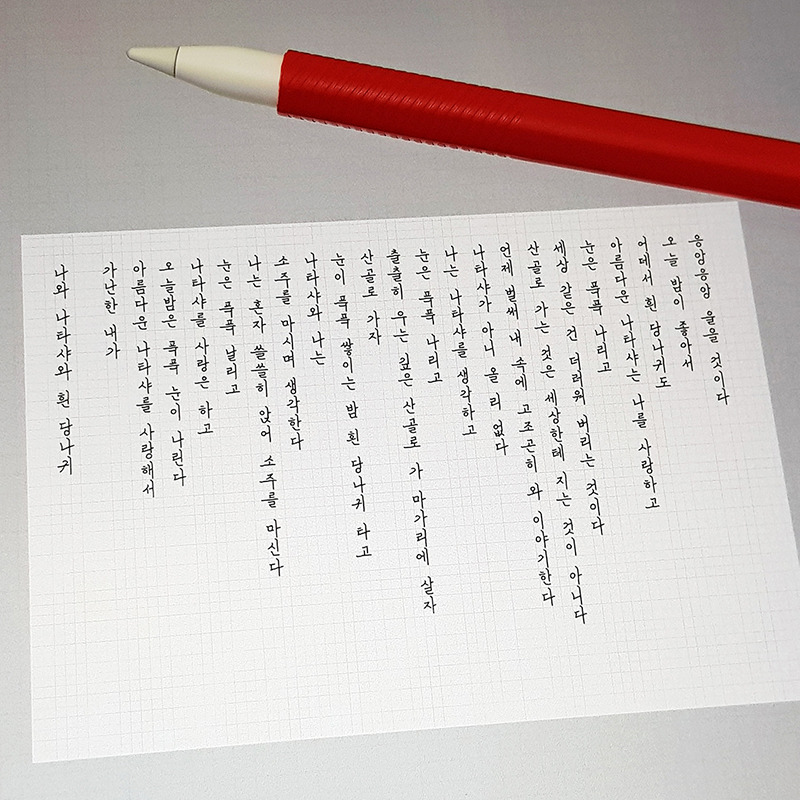 나와 나타샤와 흰 당나귀
가난한 내가
아름다운 나타샤를 사랑해서
오늘밤은 푹푹 눈이 나린다
나타샤를 사랑은 하고
눈은 푹푹 날리고
나는 혼자 쓸쓸히 앉어 소주를 마신다
소주를 마시며 생각한다
나타샤와 나는
눈이 푹푹 쌓이는 밤 흰 당나귀 타고
산골로 가자
출출히 우는 깊은 산골로 가 마가리에 살자
눈은 푹푹 나리고
나는 나타샤를 생각하고
나타샤가 아니 올 리 없다
언제 벌써 내 속에 고조곤히 와 이야기한다
산골로 가는 것은 세상한테 지는 것이 아니다
세상 같은 건 더러워 버리는 것이다
눈은 푹푹 나리고
아름다운 나타샤는 나를 사랑하고
어데서 흰 당나귀도
오늘 밤이 좋아서
응앙응앙 울을 것이다